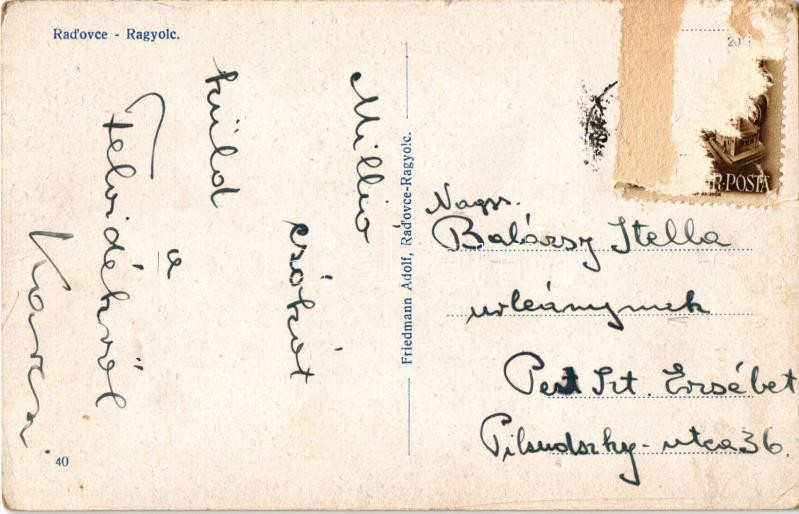 Raďovce - Ragyolc.
Millió
csókot
küld
a
Felvidékről
Karcsi.
40
Friedmann Adolf, Raďovce-Ragyolc.
R-POSTA
Nagys.
Balázsy Stella
urleánynak
Pest Szt. Erzsébet
Pilsudszky-utca 36.